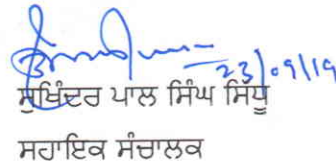 23/09/19
ਸੁਖਿੰਦਰ ਪਾਲ ਸਿੰਘ ਸਿੱਧੂ
ਸਹਾਇਕ ਸੰਚਾਲਕ